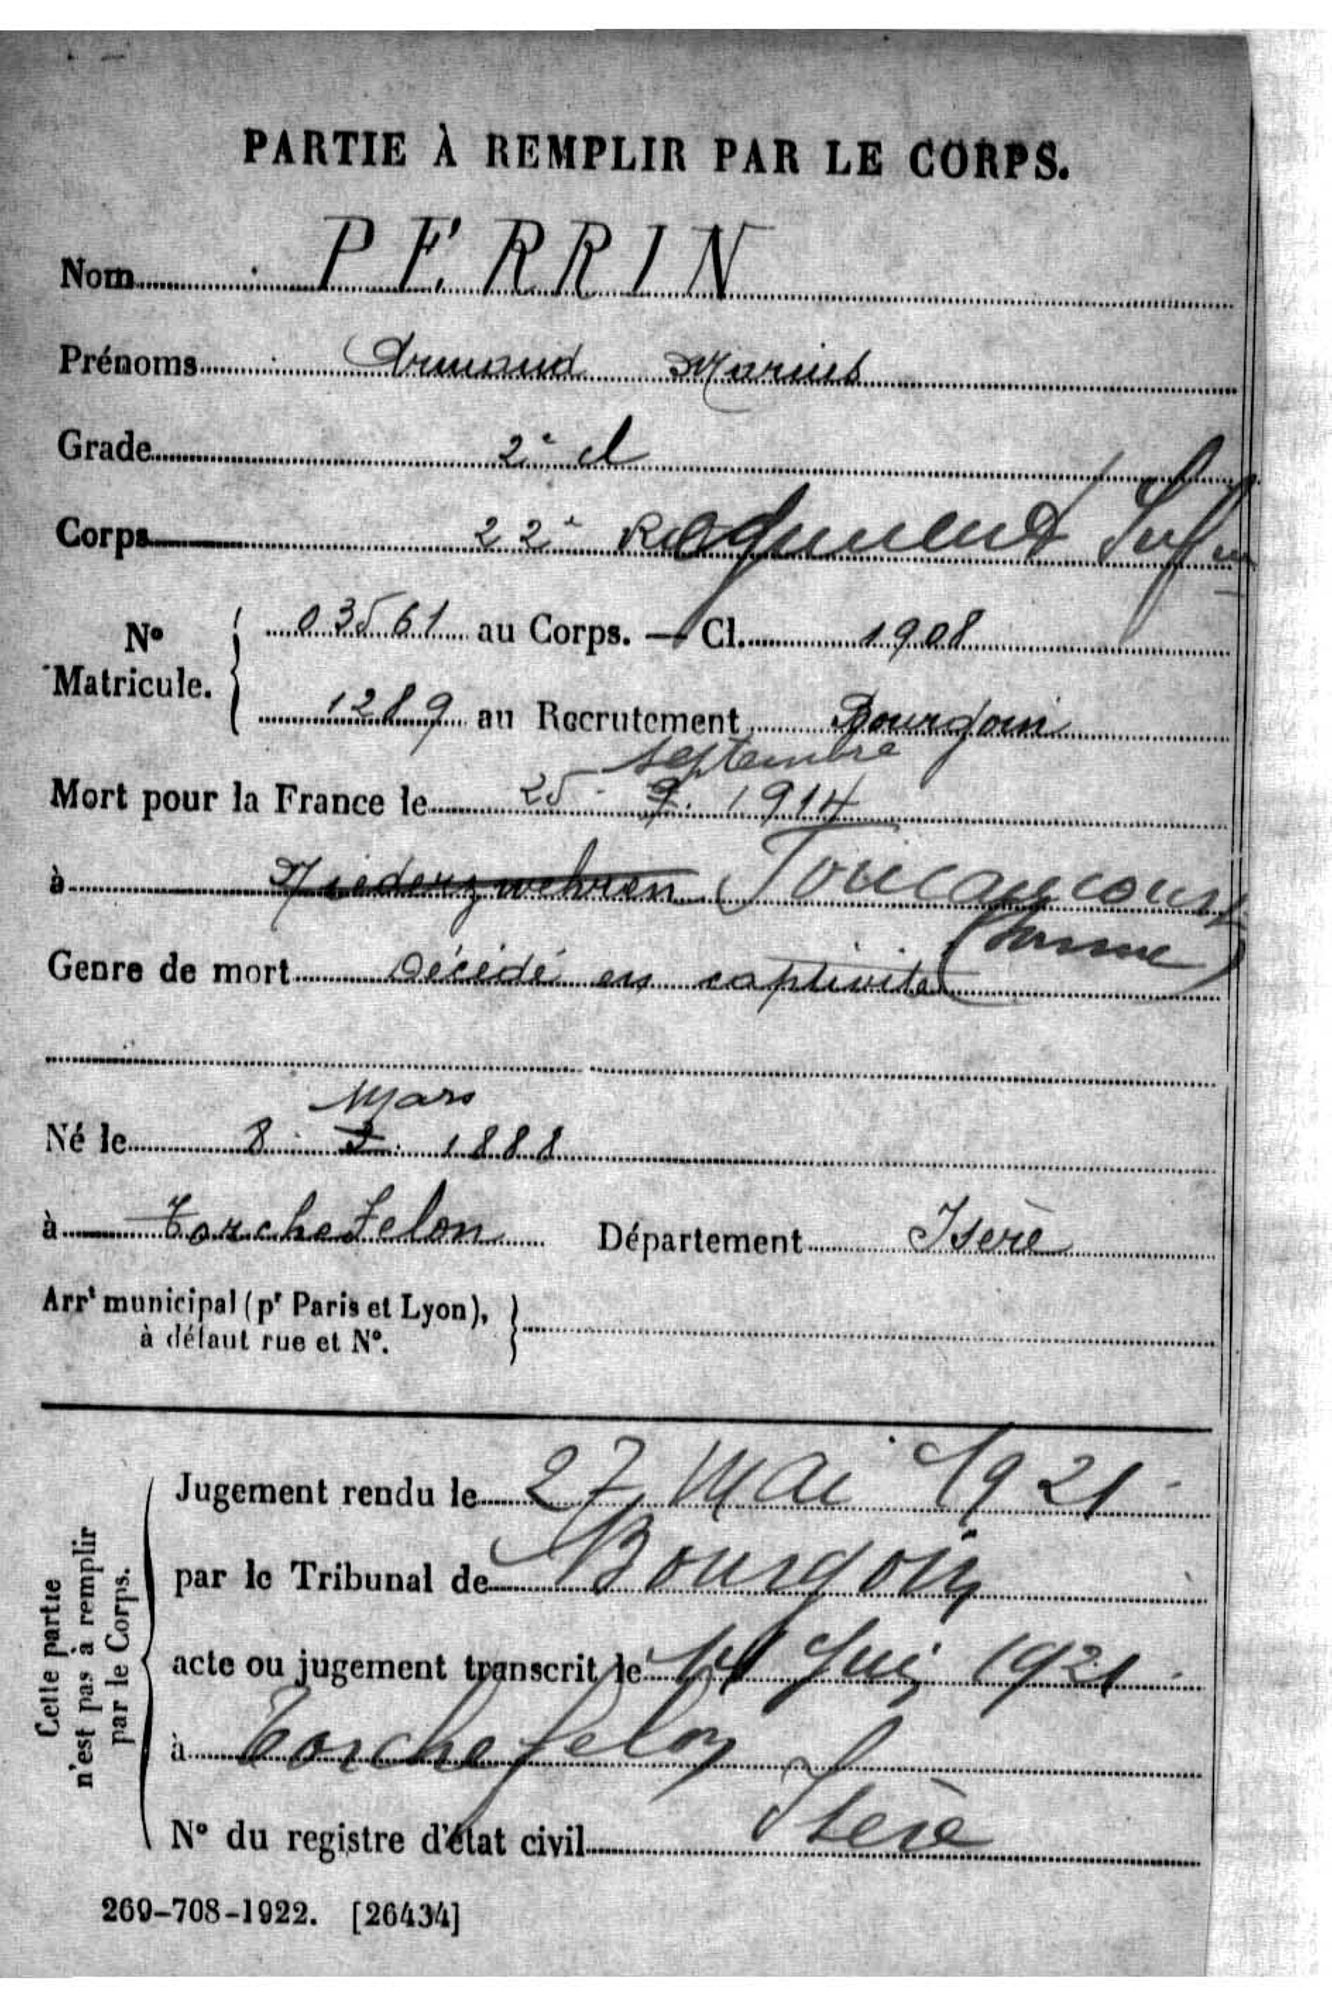 PARTIE À REMPLIR PAR LE CORPS.
Nom PERRIN
Prénoms Armand Marius
Grade 2e cl
Corps 22e Régiment Infie
No Matricule. 03561 au Corps. — Cl. 1908
1289 au Recrutement Bourgoin
septembre
Mort pour la France le 25 9 1914
à Niederzwehren Foucaucourt
(Somme)
Genre de mort Décédé en captivité
Mars
Né le 8 3 1888
à Torchefelon Département Isère
Arrt municipal (pr Paris et Lyon),
à défaut rue et No.
Cette partie
n'est pas à remplir
par le Corps.
Jugement rendu le 27 Mai 1921
par le Tribunal de Bourgoin
acte ou jugement transcrit le Juin 1921
à Torchefelon
Isère
No du registre d'état civil
269-708-1922. [26434]